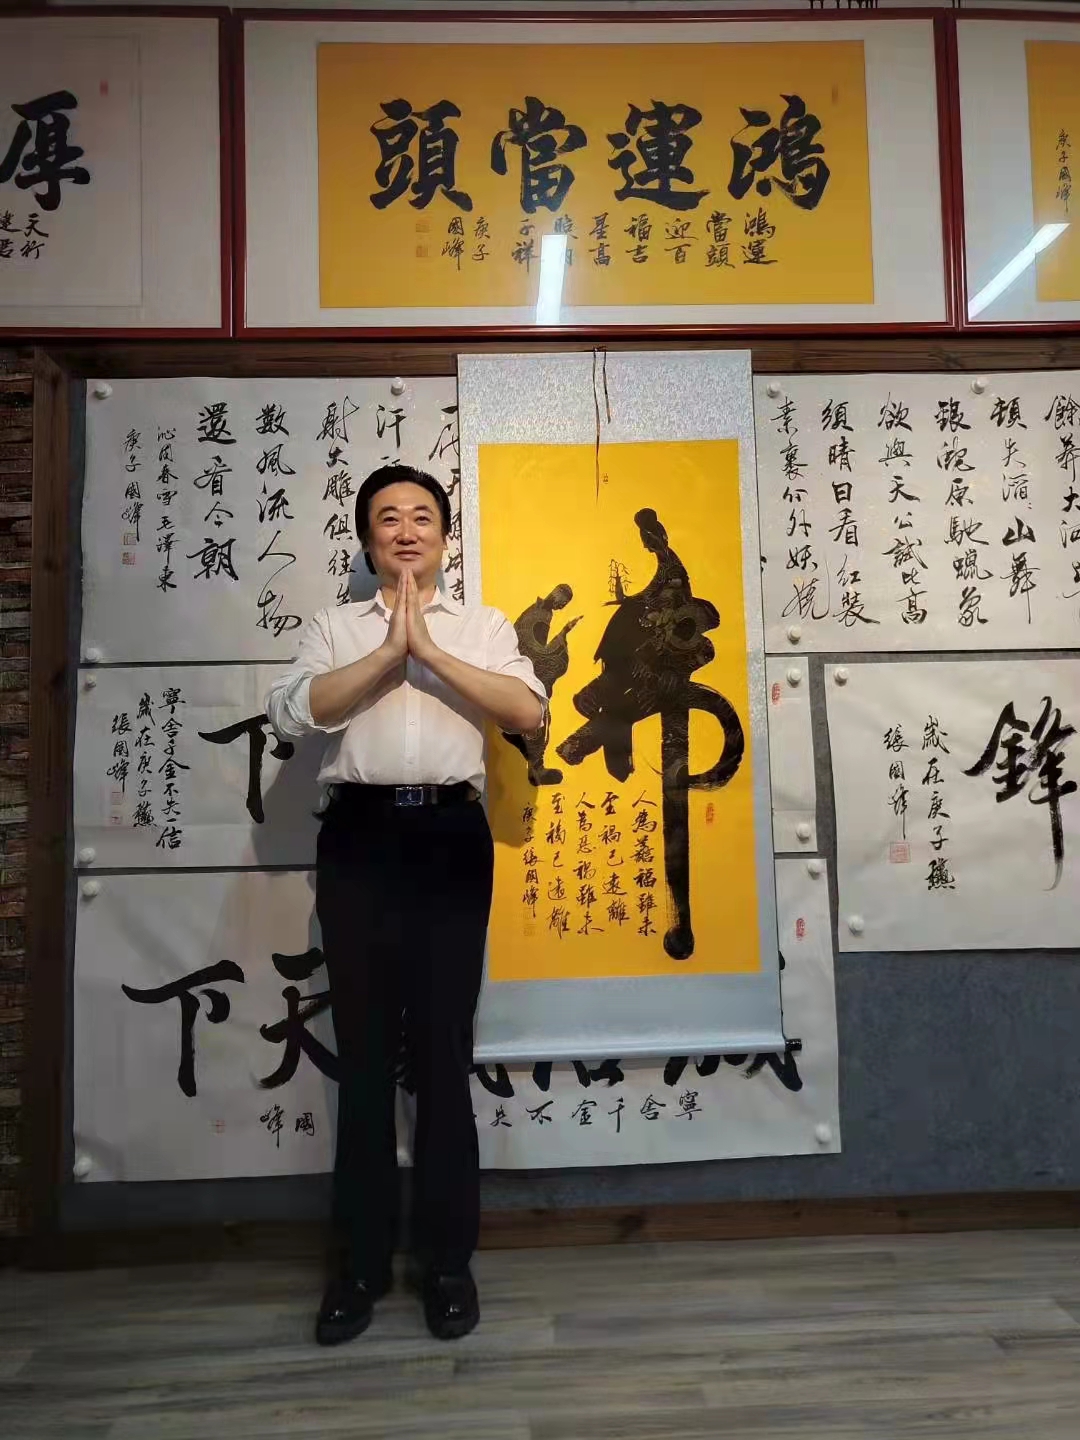 厚
天行
鴻運當頭
鴻運
當頭
迎百
福吉
星高
照
子祥
庚子
國峰
庚子國峰
餘莽大河
頓失滔滔山舞
銀蛇原馳蠟象
欲與天公試比高
須晴日看紅裝
素裹分外妖嬈
射大雕俱往
數風流人物
還看今朝
沁園春雪毛澤東
庚子國峰
佛
人為善福雖未
至禍已遠離
人為惡禍雖未
至福已遠離
庚子張國峰
下
寧舍千金不失一信
歲在庚子
張國峰
鋒
歲在庚子
張國峰
誠信
天下
寧舍千金不失
國峰